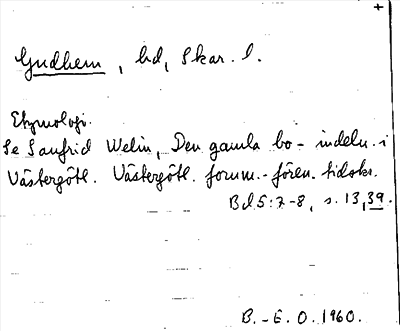 +
Gudhem, hd, Skar. l.
Etymologi.
Se Sanfrid Welin, Den gamla bo-indeln. i
Västergötl. Västergötl. fornm.-fören. tidskr.
Bd 5:7-8, s. 13, 39.
B.-E. O. 1960.